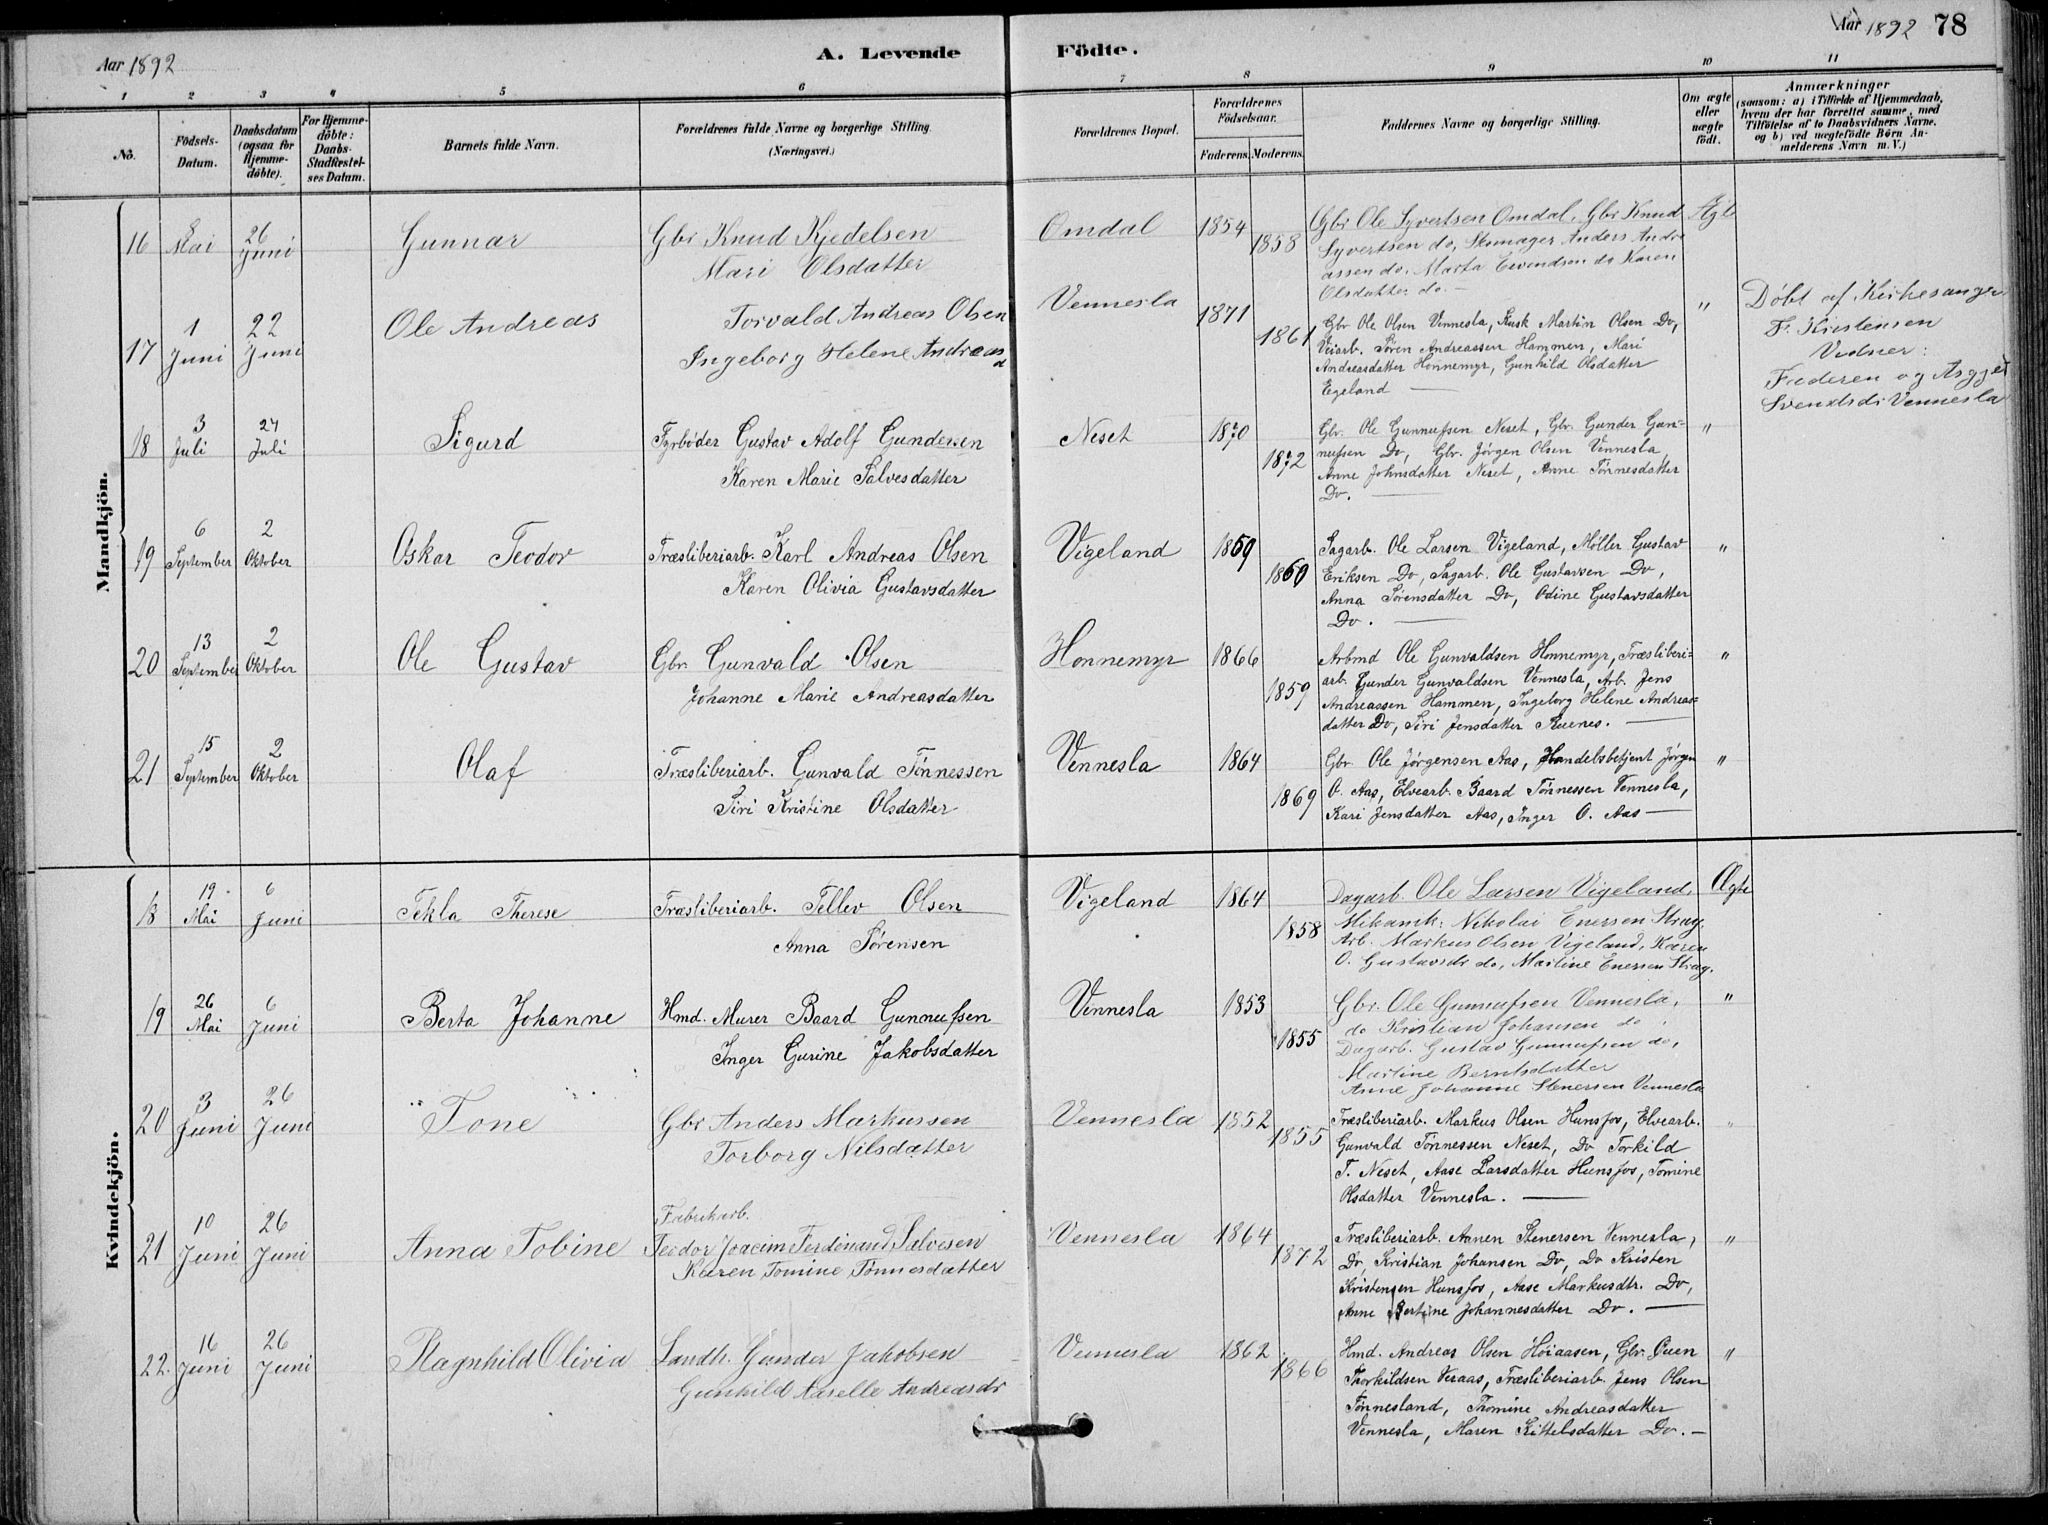 Aar 1892
A. Levende
Födte.
Aar 1892 78
1 2 3 4 5 6 7 8 9 10 11
No.
Födsels-Datum.
Daabsdatum (ogsaa for Hjemme-döbte).
For Hjemme-döbte: Daabs-Stadfæstel-ses Datum.
Barnets fulde Navn.
Forældrenes fulde Navne og borgerlige Stilling.
(Næringsvei.)
Forældrenes Bopæl.
Forældrenes Födselsaar.
Faderens. Moderens.
Faddernes Navne og borgerlige Stilling.
Om ægte eller uægte födt.
Anmærkninger
(saasom: a) i Tilfælde af Hjemmedaab,
hvem der har forrettet samme, med
Tilföielse af to Daabsvidners Navne,
og b) ved uægtefödte Börn An-
melderens Navn m. V.)
Mandkjön.
16 Mai 26 Juni Gunnar
Gbr Knud Kjedelsen
Mari Olsdatter
Omdal 1854 1858
Gbr Ole Syvertsen Omdal, Gbr Knud
Syvertsen do, Skomager Anders Andre
assen do. Marta Eivendsen do Karen
Olsdatter do. —
Ægte
17 1 Juni 22 Juni Ole Andreas
Torvald Andreas Olsen
Ingeborg Helene Andreasd
Vennesla 1871 1861
Gbr Ole Olsen Vennesla, Kusk Martin Olsen Do,
Veiarb. Søren Andreassen Hammen, Mari
Andreasdatter Honnemyr, Gunhild Olsdatter
Egeland —
"
Døbt af Kirkesanger
F. Kristensen
Vidner:
Faderen og
Svendsd: Vennesla
18 3 Juli 24 Juli Sigurd
Fyrbøder Gustav Adolf Gundersen
Karen Marie Salvesdatter
Neset 1870 1872
Gbr. Ole Gunnufsen Neset, Gbr. Gunder Gun-
nufsen Do, Gbr. Jørgen Olsen Vennesla,
Anne Johnsdatter Neset, Anne Tønnesdatter
Do. —
"
19 6 September 2 Oktober Oskar Teodor
Træsliberiarb. Karl Andreas Olsen
Karen Olivia Gustavsdatter
Vigeland 1859 1860
Sagarb. Ole Larsen Vigeland, Møller Gustav
Eriksen Do, Sagarb. Ole Gustavsen Do,
Anna Sørensdatter Do, Odine Gustavsdatter
Do. —
"
20 13 September 2 Oktober Ole Gustav
Gbr. Gunvald Olsen
Johanne Marie Andreasdatter
Honnemyr 1866 1859
Arbmd Ole Gunvaldsen Honnemyr, Træsliberi=
arb. Gunder Gunvaldsen Vennesla, Arb. Jens
Andreassen Hammen, Ingeborg Helene Andreas=
datter Do, Siri Jensdatter Ruenes. —
"
21 15 September 2 Oktober Olaf
Træsliberiarb. Gunvald Tønnessen
Siri Kristine Olsdatter
Vennesla 1864 1869
Gbr Ole Jørgensen Aas, Handelsbetjent Jørgen
O. Aas, Elvearb. Baard Tønnessen Vennesla,
Kari Jensdatter Aas, Inger O. Aas —
"
Kvindekjön.
18 19 Mai 6 Juni Tekla Therese
Træsliberiarb. Tellev Olsen
Anna Sørensen
Vigeland 1864 1858
Dagarb. Ole Larsen Vigeland,
Mikanik: Nikolai Enersen Stray,
Arb. Markus Olsen Vigeland, Karen
O. Gustavsdr do, Martine Enersen Stray.
Ægte
19 26 Mai 6 Juni Berta Johanne
Hmd. Murer Baard Gunnufsen
Inger Gurine Jakobsdatter
Vennesla 1853 1855
Gbr. Ole Gunnufsen Vennesla,
do Kristian Johansen do,
Dagarb. Gustav Gunnufsen do,
Martine Berntsdatter
Anne Johanne Stenersen Vennesla
"
20 3 Juni 26 Juni Tone
Gbr Anders Markussen
Torborg Nilsdatter
Vennesla 1852 1855
Træsliberiarb. Markus Olsen Hunsfos, Elvearb.
Gunvald Tønnessen Neset, Do Torkild
T. Neset, Aase Larsdatter Hunsfos, Tomine
Olsdatter Vennesla. —
"
21 10 Juni 26 Juni Anna Tobine
Fabrikarb.
Teodor Joacim Ferdinand Salvesen
Karen Tomine Tønnesdatter
Vennesla 1864 1872
Træsliberiarb. Aanen Stenersen Vennesla,
Do, Kristian Johansen Do, Do Kristen
Kristensen Hunsfos, Aase Markusdtr. Do,
Anne Bertine Johannesdatter Do. —
"
22. 16 Juni 26 Juni Ragnhild Olivia
Landh. Gunder Jakobsen
Gunhild Aaselle Andreasdr
Vennesla 1862 1866
Hmd. Andreas Olsen Høiaasen, Gbr. Even
Thorkildsen Veraas, Træsliberiarb. Jens Olsen
Tønnesland, Thomine Andreasdatter
Vennesla, Maren Kittelsdatter Do. —
"